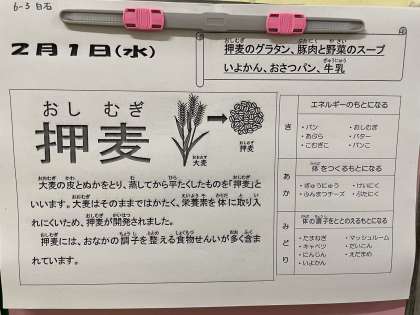 6-3 白石
2月1日(水)
押麦のグラタン、豚肉と野菜のスープ
いよかん、おさつパン、牛乳
おし むぎ
押麦
大麦
押麦
大麦の皮とぬかをとり、蒸してから平たくしたものを「押麦」と
いいます。大麦はそのままではかたく、栄養素を体に取り入
れにくいため、押麦が開発されました。
押麦には、おなかの調子を整える食物せんいが多く含ま
れています。
き
エネルギーのもとになる
・パン ・おしむぎ
・あぶら ・バター
・こむぎこ ・パンこ
あか
体をつくるもとになる
・ぎゅうにゅう ・けいにく
・ふんまつチーズ ・ぶたにく
みどり
体の調子をととのえるもとになる
・たまねぎ ・マッシュルーム
・キャベツ ・だいこん
・にんじん ・えだまめ
・いよかん